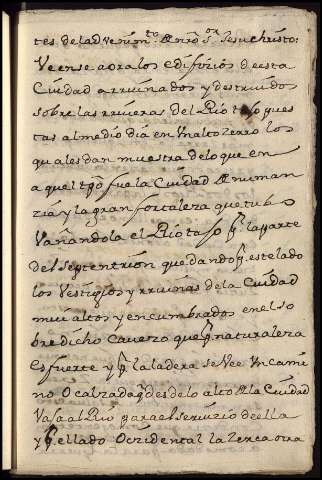 tes. de la Venim.to de nrō S.or Jesuchristo:
Veense aora los edifizios de esta
Ciudad arruinados y destruidos
sobre las rriueras del Rio tajo pues
tas al medio dia en Vn alto zerro los
quales dan muestra de lo que en
aquel tpō fue la Ciudad de numan
zia y la gran fortaleza que tubo
Vañandola el Rio tajo pr. la parte
del septentrion quedando pr. este lado
los Vestigios y rruinas de la Ciudad
mui altos y encumbrados en el so
bredicho cauezo que pr. naturaleza
es fuerte y pr. la ladera se Vee Vn cami
no O calzada q̄ desde lo alto de la Ciudad
Vaja al Rio para el seruizio de ella
y pr. el lado Oczidental la zerca otra